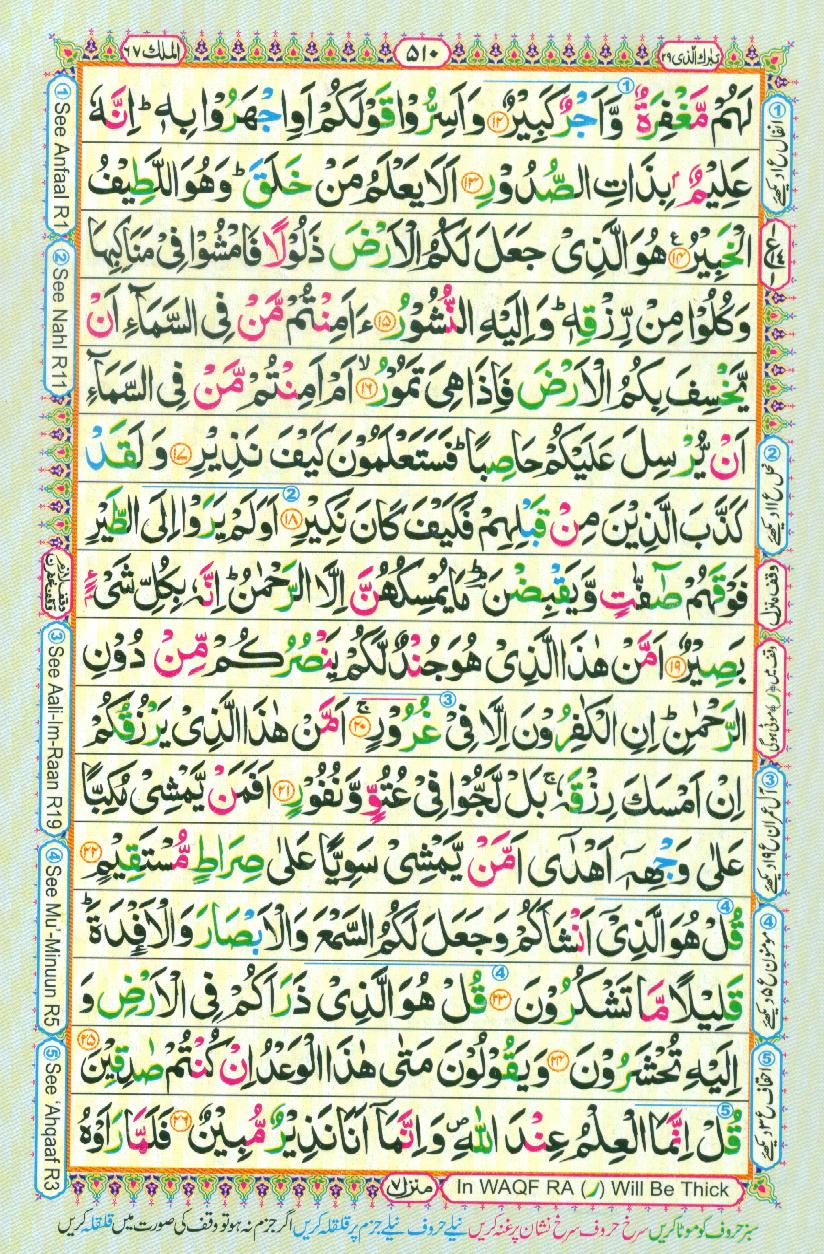 تبٰرك الذی ۲۹
۵۱۰
الملك ۶۷
لَهُمْ مَّغْفِرَةٌ وَّاَجْرٌ كَبِيْرٌ ﴿۱۲﴾ وَاَسِرُّوْا قَوْلَكُمْ اَوِ اجْهَرُوْا بِهٖ ؕ اِنَّهٗ
عَلِيْمٌۢ بِذَاتِ الصُّدُوْرِ ﴿۱۳﴾ اَلَا يَعْلَمُ مَنْ خَلَقَ ؕ وَهُوَ اللَّطِيْفُ
الْخَبِيْرُ ﴿۱۴﴾ هُوَ الَّذِيْ جَعَلَ لَكُمُ الْاَرْضَ ذَلُوْلًا فَامْشُوْا فِيْ مَنَاكِبِهَا
وَكُلُوْا مِنْ رِّزْقِهٖ ؕ وَاِلَيْهِ النُّشُوْرُ ﴿۱۵﴾ ءَاَمِنْتُمْ مَّنْ فِي السَّمَآءِ اَنْ
يَّخْسِفَ بِكُمُ الْاَرْضَ فَاِذَا هِيَ تَمُوْرُ ۙ﴿۱۶﴾ اَمْ اَمِنْتُمْ مَّنْ فِي السَّمَآءِ
اَنْ يُّرْسِلَ عَلَيْكُمْ حَاصِبًا ؕ فَسَتَعْلَمُوْنَ كَيْفَ نَذِيْرِ ﴿۱۷﴾ وَلَقَدْ
كَذَّبَ الَّذِيْنَ مِنْ قَبْلِهِمْ فَكَيْفَ كَانَ نَكِيْرِ ﴿۱۸﴾ اَوَلَمْ يَرَوْا اِلَى الطَّيْرِ
فَوْقَهُمْ صٰٓفّٰتٍ وَّيَقْبِضْنَ ؔۘؕ مَا يُمْسِكُهُنَّ اِلَّا الرَّحْمٰنُ ؕ اِنَّهٗ بِكُلِّ شَيْءٍۢ
بَصِيْرٌ ﴿۱۹﴾ اَمَّنْ هٰذَا الَّذِيْ هُوَ جُنْدٌ لَّكُمْ يَنْصُرُكُمْ مِّنْ دُوْنِ
الرَّحْمٰنِ ؕ اِنِ الْكٰفِرُوْنَ اِلَّا فِيْ غُرُوْرٍ ۚ﴿۲۰﴾ اَمَّنْ هٰذَا الَّذِيْ يَرْزُقُكُمْ
اِنْ اَمْسَكَ رِزْقَهٗ ۚ بَلْ لَّجُّوْا فِيْ عُتُوٍّ وَّنُفُوْرٍ ﴿۲۱﴾ اَفَمَنْ يَّمْشِيْ مُكِبًّا
عَلٰى وَجْهِهٖٓ اَهْدٰٓى اَمَّنْ يَّمْشِيْ سَوِيًّا عَلٰى صِرَاطٍ مُّسْتَقِيْمٍ ﴿۲۲﴾
قُلْ هُوَ الَّذِيْٓ اَنْشَاَكُمْ وَجَعَلَ لَكُمُ السَّمْعَ وَالْاَبْصَارَ وَالْاَفْـِٕدَةَ ؕ
قَلِيْلًا مَّا تَشْكُرُوْنَ ﴿۲۳﴾ قُلْ هُوَ الَّذِيْ ذَرَاَكُمْ فِي الْاَرْضِ وَ
اِلَيْهِ تُحْشَرُوْنَ ﴿۲۴﴾ وَيَقُوْلُوْنَ مَتٰى هٰذَا الْوَعْدُ اِنْ كُنْتُمْ صٰدِقِيْنَ ﴿۲۵﴾
قُلْ اِنَّمَا الْعِلْمُ عِنْدَ اللّٰهِ ۪ وَاِنَّمَآ اَنَا نَذِيْرٌ مُّبِيْنٌ ﴿۲۶﴾ فَلَمَّا رَاَوْهُ
① See Anfaal R1
② See Nahl R11
③ See Aali-Im-Raan R19
④ See Mu'-Minuun R5
⑤ See 'Ahqaaf R3
① انفال ع ۱ دیکھئے
② نحل ع ۱۱ دیکھئے
وقف منزل
③ آل عمران ع ۱۹ دیکھئے
④ مومنون ع ۵ دیکھئے
⑤ احقاف ع ۳ دیکھئے
منزل ۷
In WAQF RA (ر) Will Be Thick
سبز حروف کو موٹا کریں سرخ حروف سرخ نشان پر غنہ کریں نیلے حروف نیلے جزم پر قلقلہ کریں اگر جزم نہ ہو تو وقف کی صورت میں قلقلہ کریں